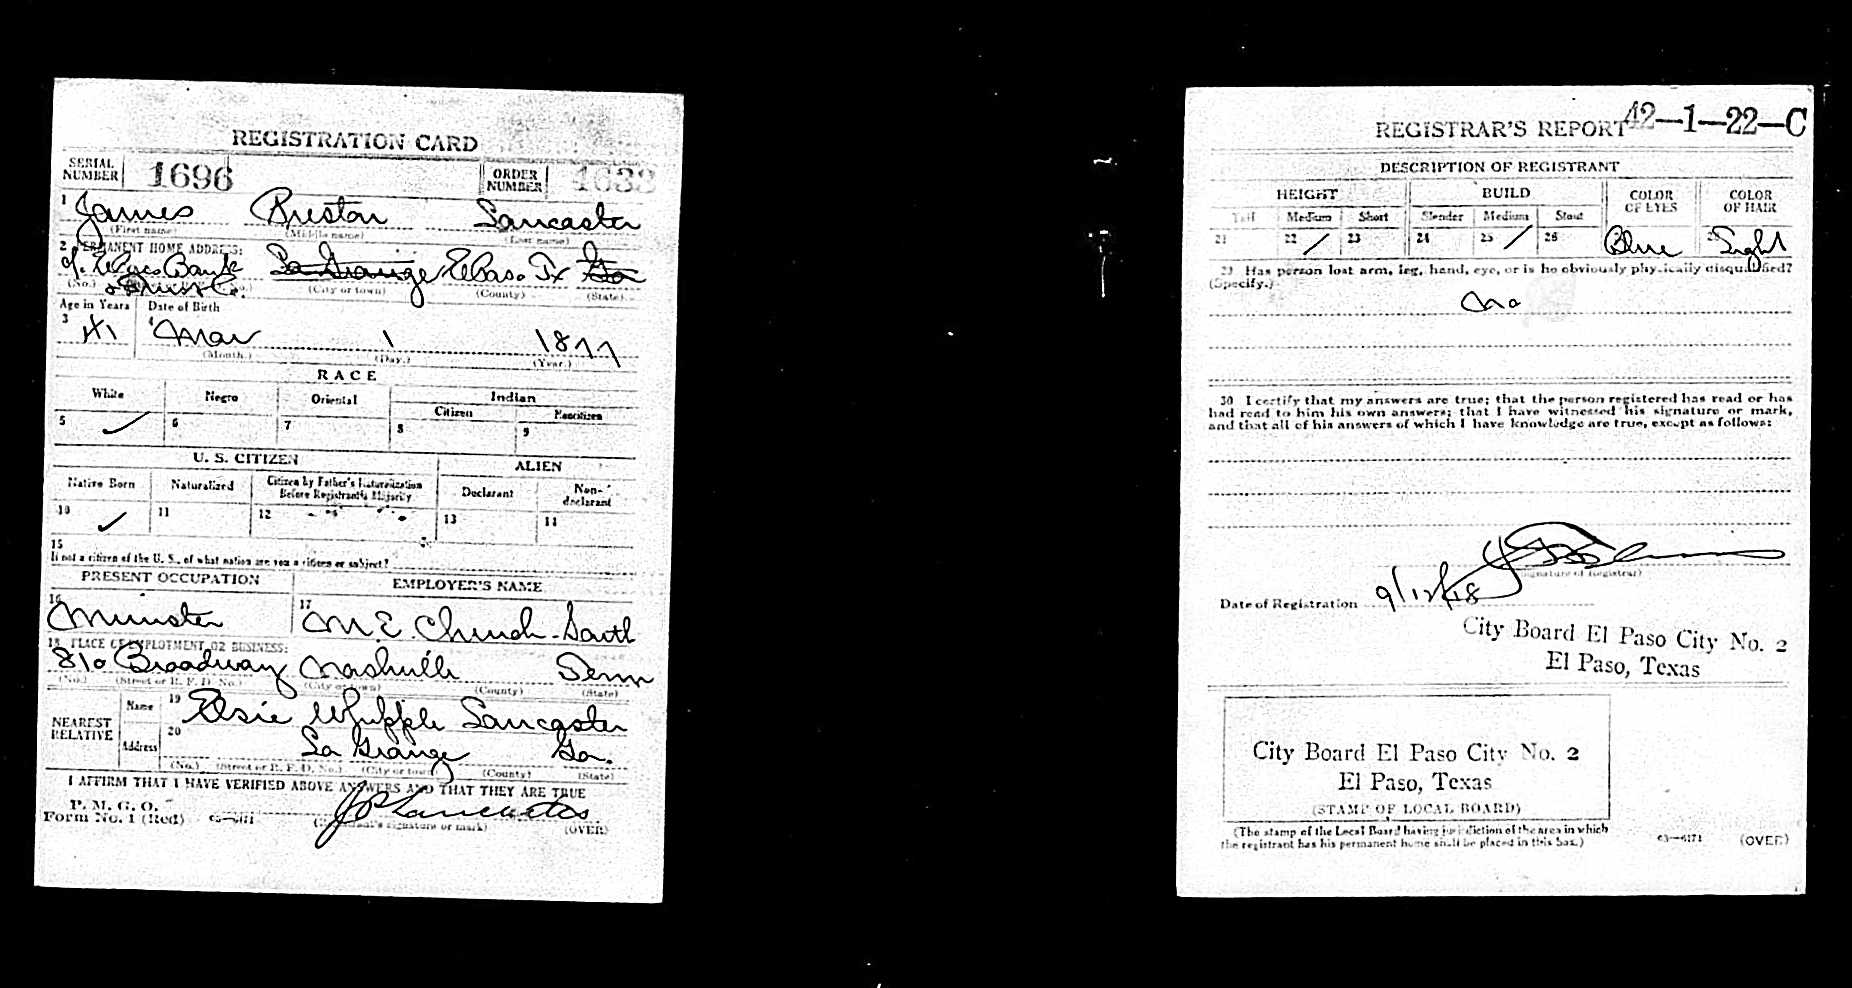 REGISTRATION CARD
SERIAL NUMBER 1696 ORDER NUMBER
1 James Preston Lancaster
(First name) (Middle name) (Last name)
2 PERMANENT HOME ADDRESS:
Bank La Grange Elpaso Tx Ga
(No.) (City or town) (County) (State)
& Trust Co.
Age in Years Date of Birth
3 41 4 Mar 1 1877
(Month.) (Day.) (Year.)
RACE
White Negro Oriental Indian
Citizen Noncitizen
5 ✓ 6 7 8 9
U. S. CITIZEN ALIEN
Native Born Naturalized Citizen by Father's Naturalization Before Registrant's Majority Declarant Non-declarant
10 ✓ 11 12 13 14
15
If not a citizen of the U. S., of what nation are you a citizen or subject?
PRESENT OCCUPATION EMPLOYER'S NAME
16 Minister 17 M. E. Church-South
18 PLACE OF EMPLOYMENT OR BUSINESS:
810 Broadway Nashville Tenn
(No.) (Street or R. F. D. No.) (City or town) (County) (State)
NEAREST RELATIVE Name 19 Elsie Whipple Lancaster
Address 20 La Grange Ga.
(No.) (Street or R. F. D. No.) (City or town) (County) (State)
I AFFIRM THAT I HAVE VERIFIED ABOVE ANSWERS AND THAT THEY ARE TRUE
P. M. G. O.
Form No. 1 (Red) 03—6171 J P Lancaster
(Registrant's signature or mark) (OVER)
42—1—22—C
REGISTRAR'S REPORT
DESCRIPTION OF REGISTRANT
HEIGHT BUILD COLOR OF EYES COLOR OF HAIR
Tall Medium Short Slender Medium Stout
21 22 / 23 24 25 / 26 Blue 28 Light
29 Has person lost arm, leg, hand, eye, or is he obviously physically disqualified?
(Specify.)
No
30 I certify that my answers are true; that the person registered has read or has
had read to him his own answers; that I have witnessed his signature or mark,
and that all of his answers of which I have knowledge are true, except as follows:
(Signature of Registrar)
Date of Registration 9/12/18
City Board El Paso City No. 2
El Paso, Texas
City Board El Paso City No. 2
El Paso, Texas
(STAMP OF LOCAL BOARD)
(The stamp of the Local Board having jurisdiction of the area in which
the registrant has his permanent home shall be placed in this box.) 03—6171 (OVER)